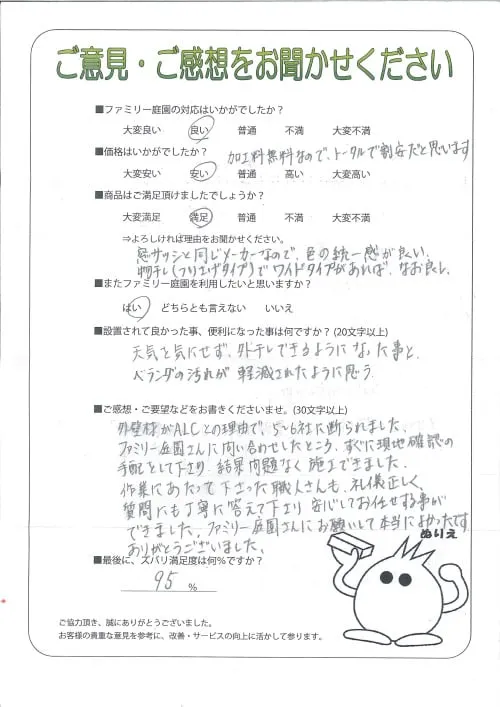 ご意見・ご感想をお聞かせください
■ファミリー庭園の対応はいかがでしたか?
大変良い 良い 普通 不満 大変不満
■価格はいかがでしたか?
加工料無料なので、トータルで割安だと思います
大変安い 安い 普通 高い 大変高い
■商品はご満足頂けましたでしょうか?
大変満足 満足 普通 不満 大変不満
⇒よろしければ理由をお聞かせください。
窓サッシと同じメーカーなので、色の統一感が良い。
物干し(フリエゲタイプ)でワイドタイプがあれば、なお良し、
■またファミリー庭園を利用したいと思いますか?
はい どちらとも言えない いいえ
■設置されて良かった事、便利になった事は何ですか?(20文字以上)
天気を気にせず、外干しできるようになった事と、
ベランダの汚れが軽減されたように思う
■ご感想・ご要望などをお書きくださいませ。(30文字以上)
外壁材がALCとの理由で、5~6社に断られました。
ファミリー庭園さんに問い合わせしたところ、すぐに現地確認の
手配をして下さり、結果問題なく施工できました。
作業にあたって下さった職人さんも、礼儀正しく、
質問にも丁寧に答えて下さり安心してお任せする事が
できました。ファミリー庭園さんにお願いして本当によかったです
ありがとうございました。
ぬりえ
■最後に、ズバリ満足度は何%ですか?
95 %
ご協力頂き、誠にありがとうございました。
お客様の貴重な意見を参考に、改善・サービスの向上に活かして参ります。